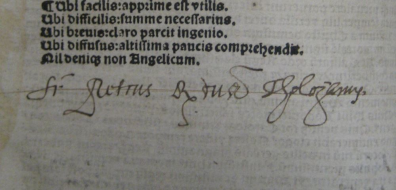 ¶Ubi facilis:apprime est vtilis.
Ubi difficilis:summe necessarius.
Ubi breuis:claro parcit ingenio.
Ubi diffusus:altissima paucis comprehendit.
Nil deniqȝ non Angelicum.
Petrus